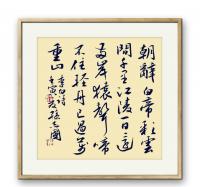 朝辭白帝彩雲
間千里江陵一日還
兩岸猿聲啼
不住輕舟已過萬
重山
李白詩
壬寅